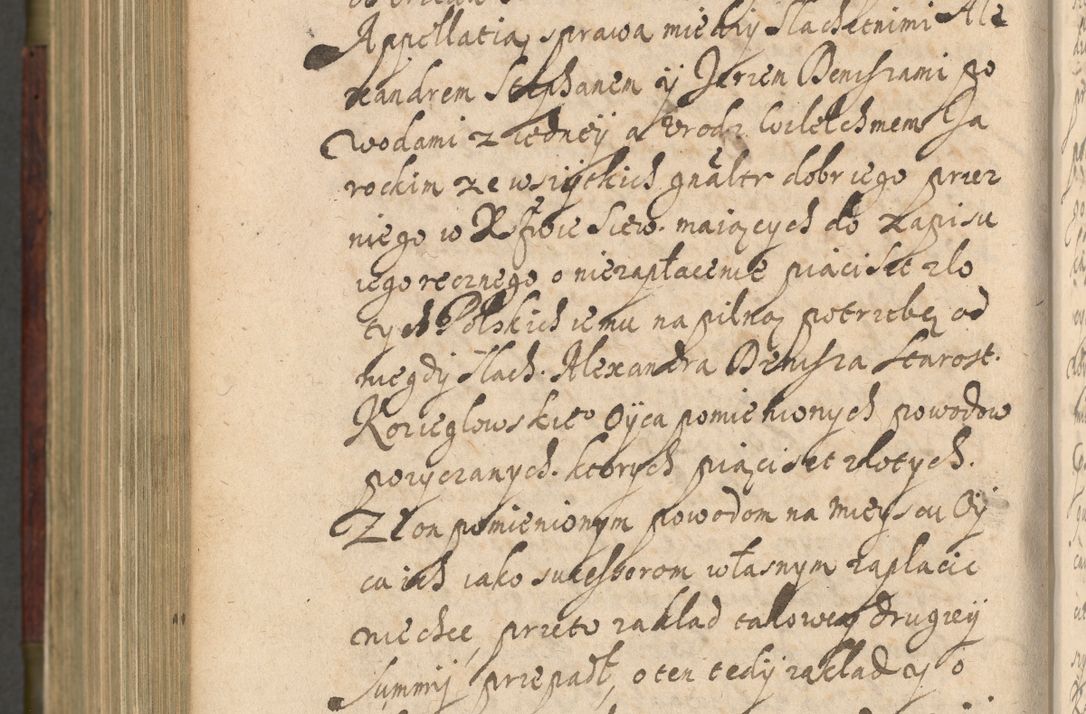 Appellatią sprawa miedzy slachetnimi Ale
xandrem Stephanem ÿ Jerzem Beniszami po
wodami z iedneÿ a Vrodz. Wilelchmem Ja
rockim ze wsiÿtkich gnaltr dobr iego przez
niego w Xstwie Siew. maiących do zapisu
iego recznego o niezapłacenie piąci set zło
tych Polskich iemu na pilną potrzebę od
niegdÿ slach. Alexandra Benisza Starost.
Kozieglowskieo Oÿca pomienionych powodow
pozyczanych. ktorych piąci set złotych.
Ze on pomienionym powodom na mieyscu Oÿ
ca ich iako sukcessorom własnym zaplacic
niechce, przeto zaklad takowey drugieÿ
summÿ przepadł, o ten tedÿ zaklad ÿ o